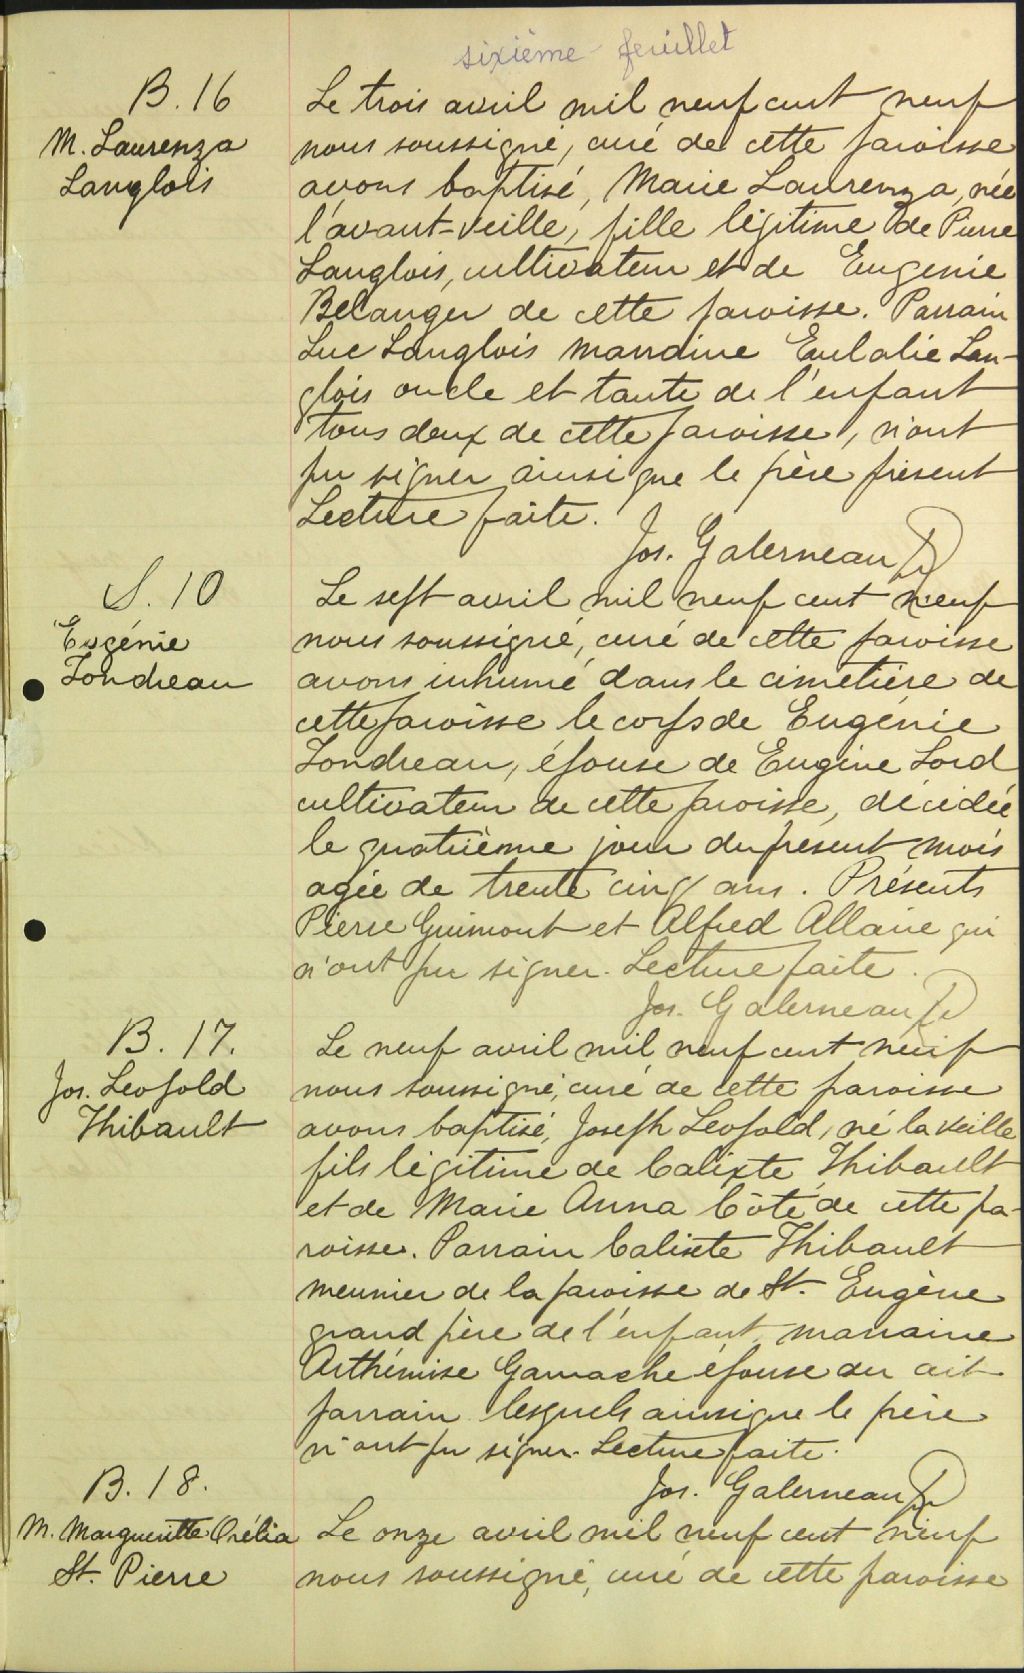 sixième feuillet
B. 16
M. Laurenza
Langlois
Le trois avril mil neuf cent neuf
nous soussigné, curé de cette paroisse
avons baptisé, Marie Laurenza, née
l'avant-veille, fille légitime de Pierre
Langlois, cultivateur et de Eugenie
Belanger de cette paroisse. Parrain
Luc Langlois marraine Eulalie Lan-
glois oncle et tante de l'enfant
tous deux de cette paroisse, n'ont
pu signer ainsi que le père présent
Lecture faite.
Jos. Galerneau Ptr
S. 10
Eugénie
Fondreau
Le sept avril mil neuf cent neuf
nous soussigné, curé de cette paroisse
avons inhumé dans le cimetière de
cette paroisse le corps de Eugénie
Fondreau, épouse de Eugène Lord
cultivateur de cette paroisse, décédée
le quatrième jour du présent mois
agée de trente cinq ans. Présents
Pierre Guimont et Alfred Allaire qui
n'ont pu signer. Lecture faite.
Jos. Galerneau Ptr
B. 17.
Jos. Leopold
Thibault
Le neuf avril mil neuf cent neuf
nous soussigné, curé de cette paroisse
avons baptisé, Joseph Leopold, né la veille
fils légitime de Calixte Thibault
et de Marie Anna Côté de cette pa-
roisse. Parrain Calixte Thibault
meunier de la paroisse de St. Eugène
grand père de l'enfant, marraine
Arthémise Gamache épouse du dit
parrain lesquels ainsi que le père
n'ont pu signer. Lecture faite.
Jos. Galerneau Ptr
B. 18.
M. Margueritte Orélia
St. Pierre
Le onze avril mil neuf cent neuf
nous soussigné, curé de cette paroisse